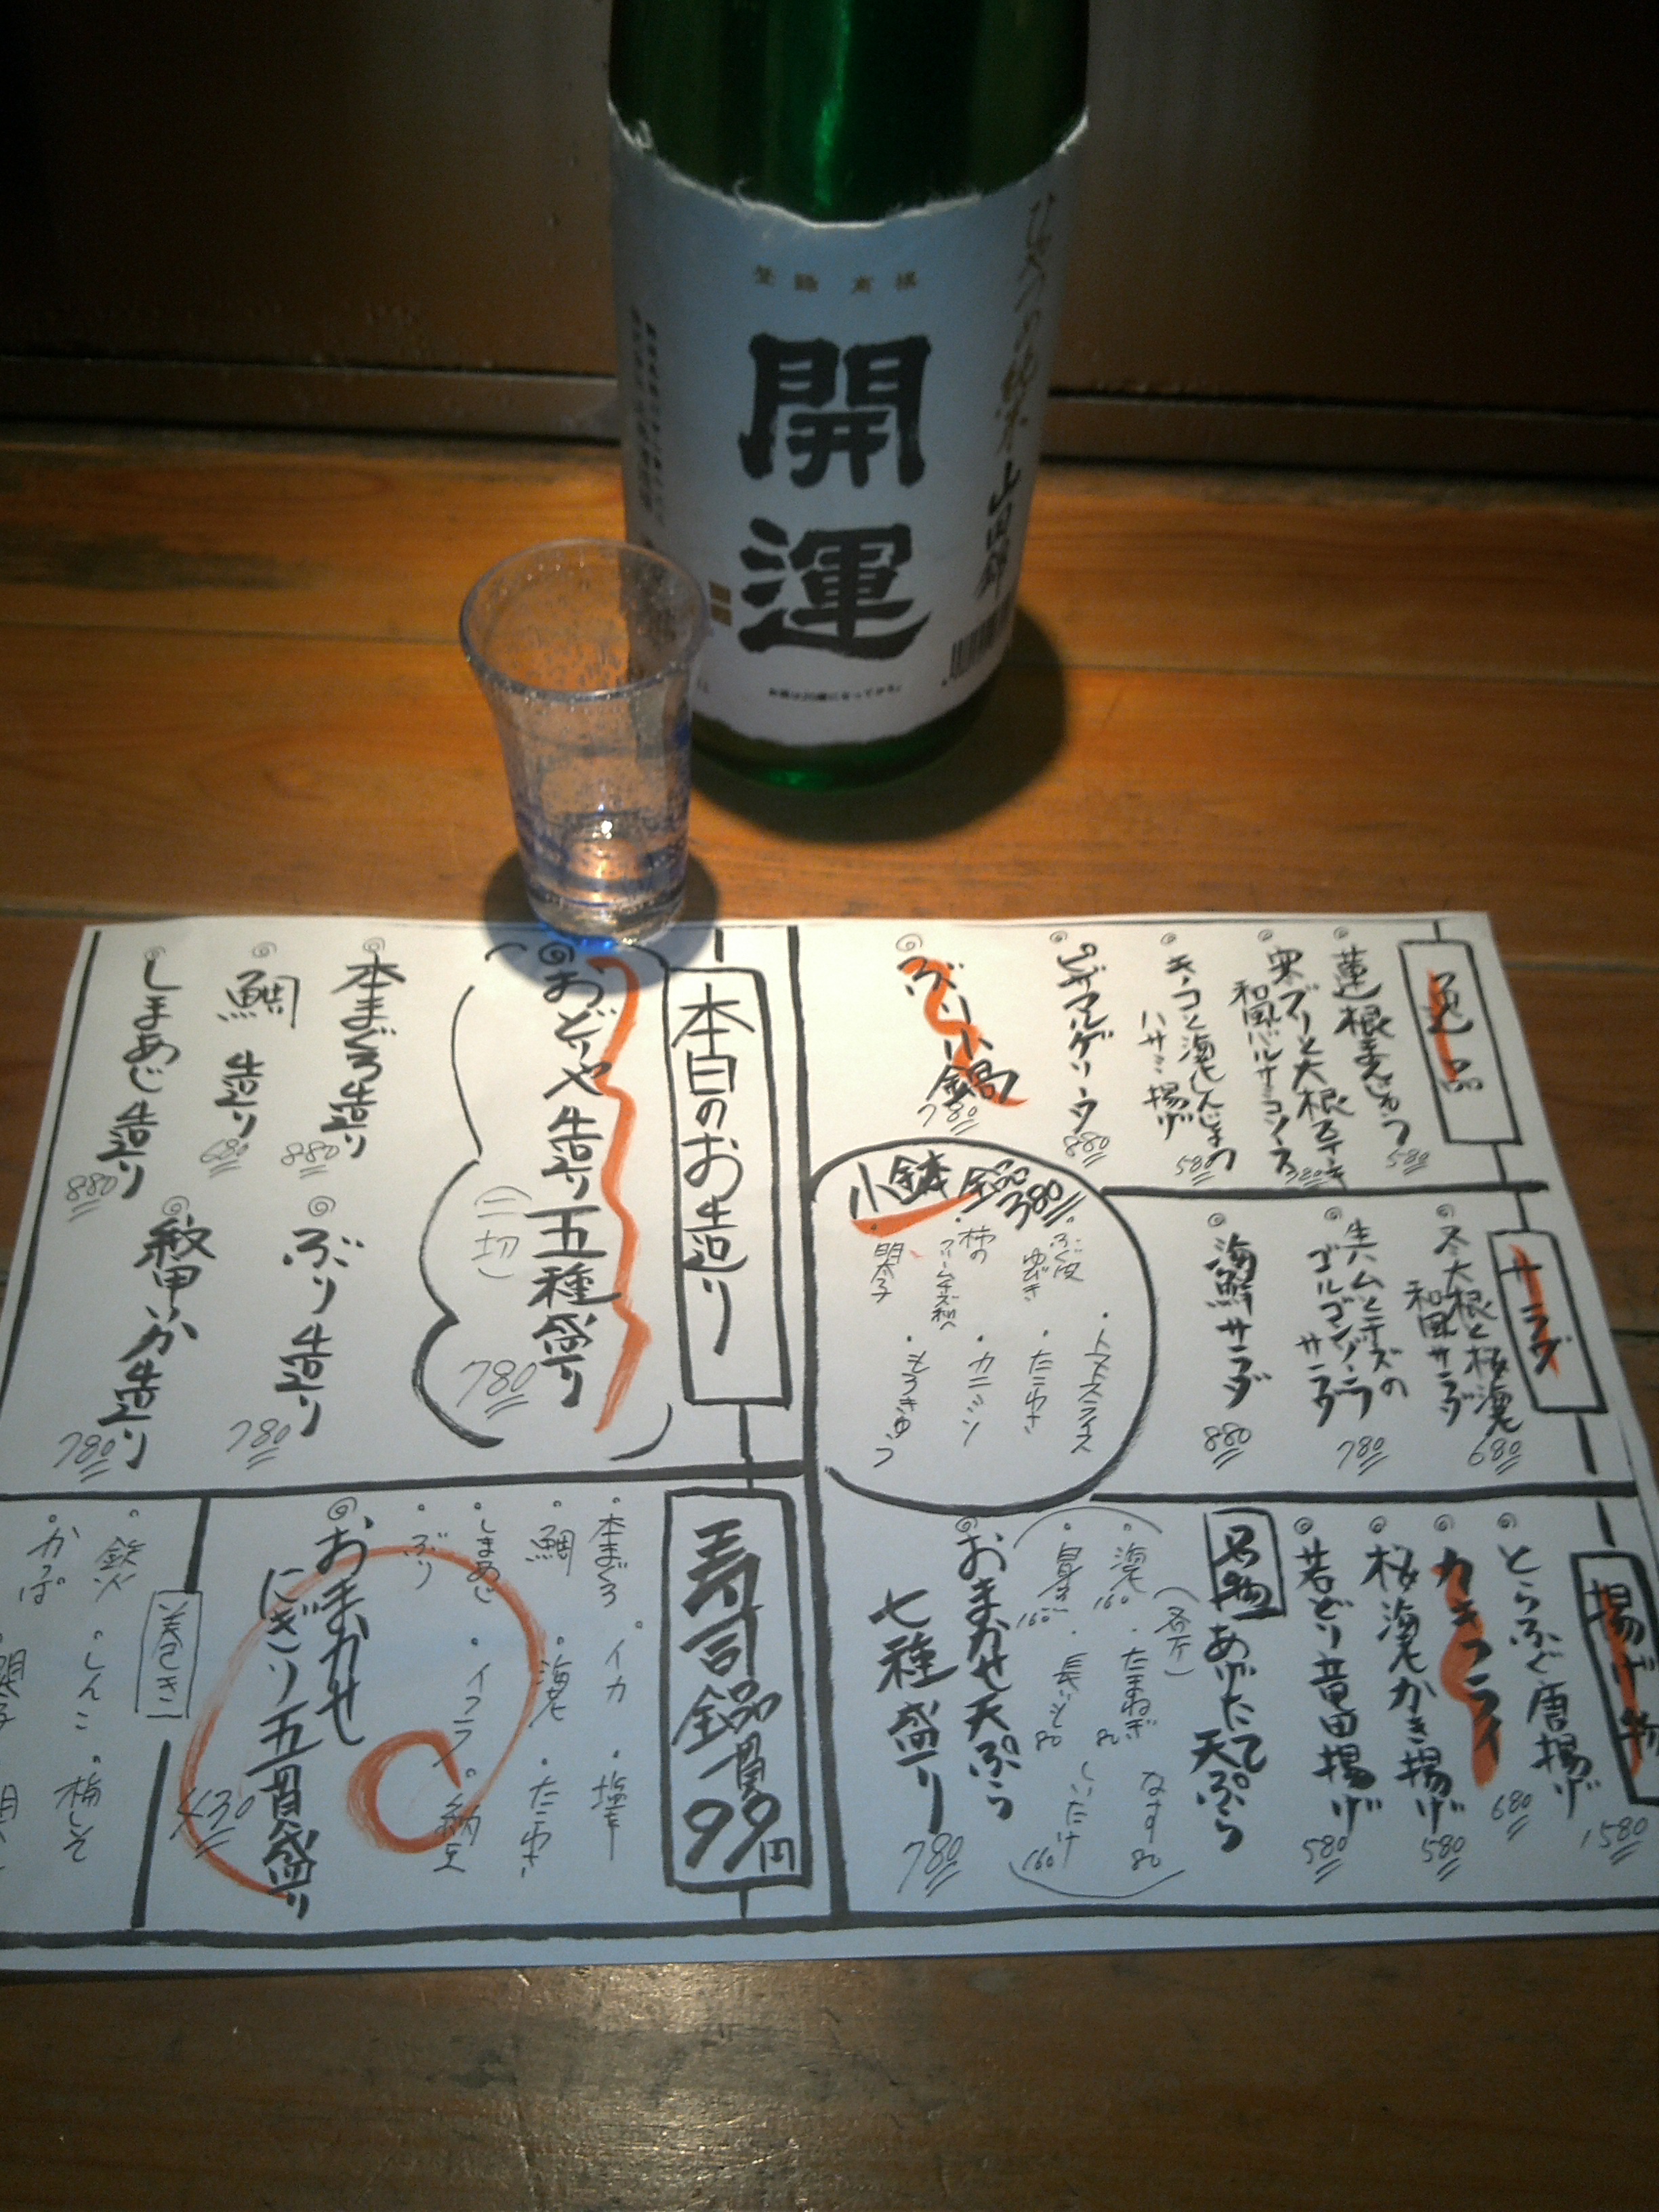 登録商標
開運
ひやづめ純米
山田錦
お酒は20歳になってから。
逸品
蓮根まんじゅう
580
寒ブリと大根ステーキ
和風バルサミコソース
キノコと海老しんじょう
ハサミ揚げ
580
ピザマルゲリータ
880
ぶり小鍋
780
サラダ
冬大根と桜海老
和風サラダ
680
生ハムとチーズの
ゴルゴンゾーラ
サラダ
780
海鮮サラダ
880
小鉢全品380
ふぐ皮
ゆびき
柿の
クリームチーズ和え
明太子
トマトスライス
たこわさ
カニミソ
もろきゅう
揚げ物
とらふぐ唐揚げ
1580
カキフライ
680
桜海老かき揚げ
580
若どり竜田揚げ
580
名物
あげたて
天ぷら
海老
160
たまねぎ
80
なす
80
160
長いも
80
しいたけ
160
おまかせ天ぷら
七種盛り
780
本日のお造り
おどりや造り五種盛り
(二切)
780
本まぐろ造り
880
鯛造り
680
しまあじ造り
880
ぶり造り
780
紋甲いか造り
780
寿司全品一貫99円
本まぐろ
イカ
塩辛
鯛
海老
たこわさ
しまあじ
イクラ
納豆
ぶり
おまかせ
にぎり五貫盛り
430
巻き
鉄火
しんこ
梅しそ
かっぱ